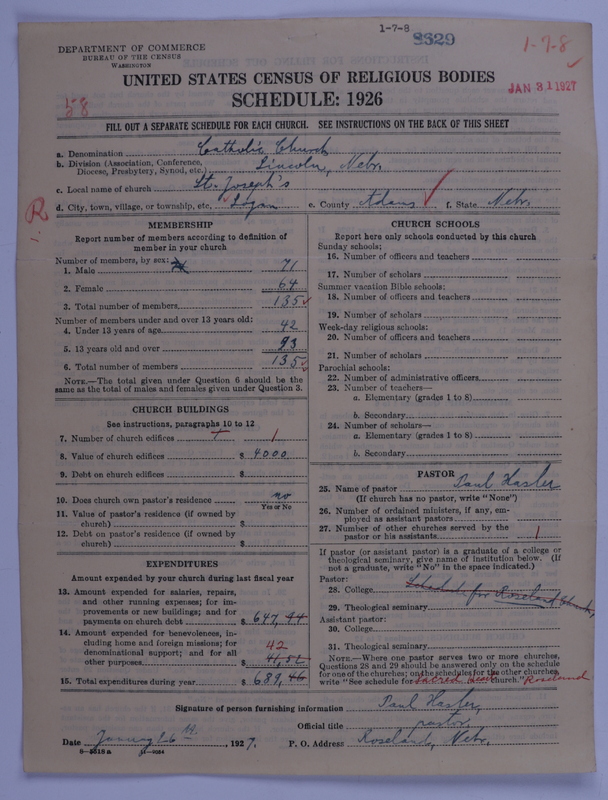 1-7-8
8329
1-7-8
DEPARTMENT OF COMMERCE
BUREAU OF THE CENSUS
WASHINGTON
UNITED STATES CENSUS OF RELIGIOUS BODIES
JAN 31 1927
58
SCHEDULE: 1926
FILL OUT A SEPARATE SCHEDULE FOR EACH CHURCH. SEE INSTRUCTIONS ON THE BACK OF THIS SHEET
a. Denomination Catholic Church
b. Division (Association, Conference, Diocese, Presbytery, Synod, etc.) Lincoln, Nebr.
c. Local name of church St. Joseph's
d. City, town, village, or township, etc. Logan e. County Adams f. State Nebr.
R
1.
MEMBERSHIP
Report number of members according to definition of
member in your church
Number of members, by sex:
1. Male 71
2. Female 64
3. Total number of members 135
Number of members under and over 13 years old:
4. Under 13 years of age 42
5. 13 years old and over 93
6. Total number of members 135
NOTE.—The total given under Question 6 should be the
same as the total of males and females given under Question 3.
CHURCH BUILDINGS
See instructions, paragraphs 10 to 12
7. Number of church edifices 1
8. Value of church edifices $ 4000
9. Debt on church edifices $
10. Does church own pastor's residence no
Yes or No
11. Value of pastor's residence (if owned by
church) $
12. Debt on pastor's residence (if owned by
church) $
EXPENDITURES
Amount expended by your church during last fiscal year
13. Amount expended for salaries, repairs,
and other running expenses; for im-
provements or new buildings; and for
payments on church debt $ 647.44
14. Amount expended for benevolences, in-
cluding home and foreign missions; for
denominational support; and for all
other purposes 42 41.52
15. Total expenditures during year $ 689.46
CHURCH SCHOOLS
Report here only schools conducted by this church
Sunday schools:
16. Number of officers and teachers
17. Number of scholars
Summer vacation Bible schools:
18. Number of officers and teachers
19. Number of scholars
Week-day religious schools:
20. Number of officers and teachers
21. Number of scholars
Parochial schools:
22. Number of administrative officers
23. Number of teachers—
a. Elementary (grades 1 to 8)
b. Secondary
24. Number of scholars—
a. Elementary (grades 1 to 8)
b. Secondary
PASTOR
25. Name of pastor Paul Hasler
(If church has no pastor, write "None")
26. Number of ordained ministers, if any, em-
ployed as assistant pastors
27. Number of other churches served by the
pastor or his assistants 1
If pastor (or assistant pastor) is a graduate of a college or
theological seminary, give name of institution below. (If
not a graduate, write "No" in the space indicated.)
Pastor:
28. College Schedule for Roseland Church,
29. Theological seminary
Assistant pastor:
30. College
31. Theological seminary
NOTE.—Where one pastor serves two or more churches,
Questions 28 and 29 should be answered only on the schedule
for one of the churches; on the schedules for the other churches,
write "See schedule for Sacred Heart church." Roseland
Signature of person furnishing information Paul Hasler,
Official title pastor,
Date January 26th, 1927. P. O. Address Roseland, Nebr.